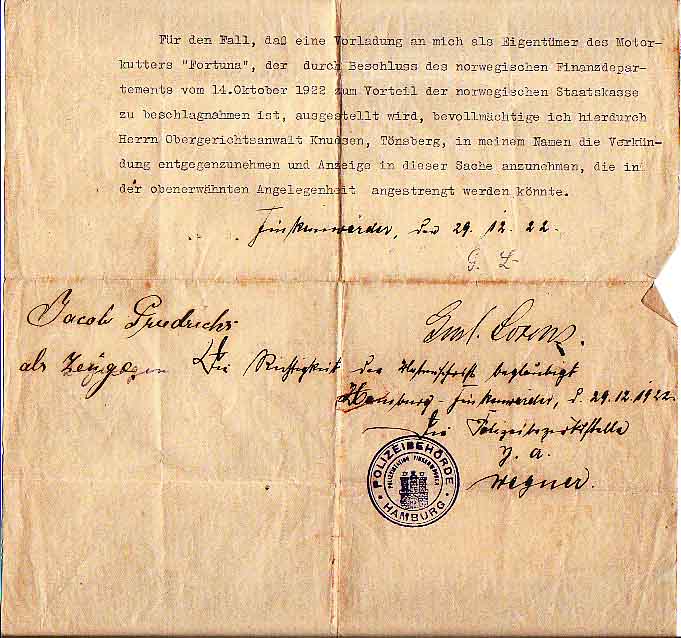 Für den Fall, daß eine Vorladung an mich als Eigentümer des Motor-
kutters "Fortuna", der durch Beschluss des norwegischen Finanzdepar-
tements vom 14.Oktober 1922 zum Vorteil der norwegischen Staatskasse
zu beschlagnahmen ist, ausgestellt wird, bevollmächtige ich hierdurch
Herrn Obergerichtsanwalt Knudsen, Tönsberg, in meinem Namen die Verkün-
dung entgegenzunehmen und Anzeige in dieser Sache anzunehmen, die in
der obenerwähnten Angelegenheit angestrengt werden könnte.
Finkenwärder, den 29. 12. 22.
G. L
Jacob Friedrichs
als Zeuge
Die Richtigkeit der Unterschrift beglaubigt
Hamburg-Finkenwärder, d. 29.12.1922.
Die
J. A.
Wegner.
POLIZEIBEHÖRDE
HAMBURG